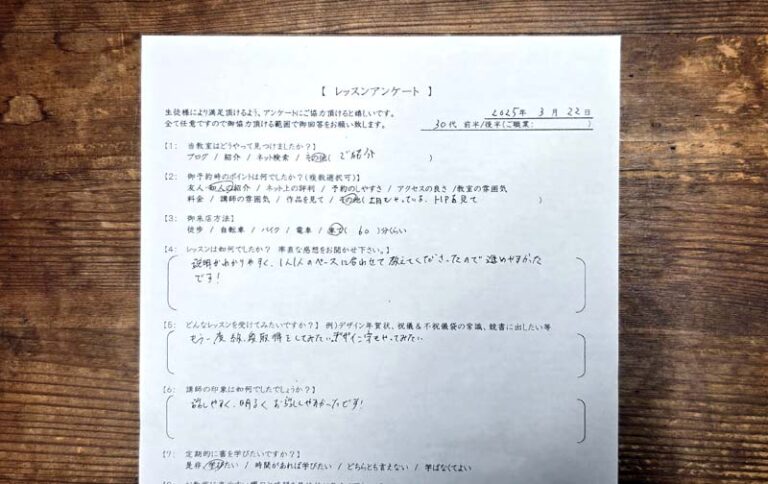 【 レッスンアンケート 】
生徒様により満足頂けるよう、アンケートにご協力頂けると嬉しいです。
全て任意ですので御協力頂ける範囲で御回答をお願い致します。
2025年 3月 22日
30代 前半/後半(ご職業: )
【1: 当教室はどうやって見つけましたか?】
ブログ / 紹介 / ネット検索 / その他( ご紹介 )
【2: 御予約時のポイントは何でしたか?(複数選択可)】
友人・知人の紹介 / ネット上の評判 / 予約のしやすさ / アクセスの良さ /教室の雰囲気
料金 / 講師の雰囲気 / 作品を見て / その他( 土日もやっている、HPを見て )
【3: 御来店方法】
徒歩 / 自転車 / バイク / 電車 / 車で( 60 )分くらい
【4: レッスンは如何でしたか? 率直な感想をお聞かせ下さい。】
説明がわかりやすく、1人1人のペースに合わせて教えてくださったので進めやすかった
です!
【5: どんなレッスンを受けてみたいですか?】 例)デザイン年賀状、祝儀&不祝儀袋の常識、競書に出したい等
もう一度 段、級取得をしてみたい。デザイン字もやってみたい
【6: 講師の印象は如何でしたでしょうか?】
話しやすく、明るく お話ししやすかったです!
【7: 定期的に書を学びたいですか?】
是非、学びたい / 時間があれば学びたい / どちらとも言えない / 学ばなくてよい